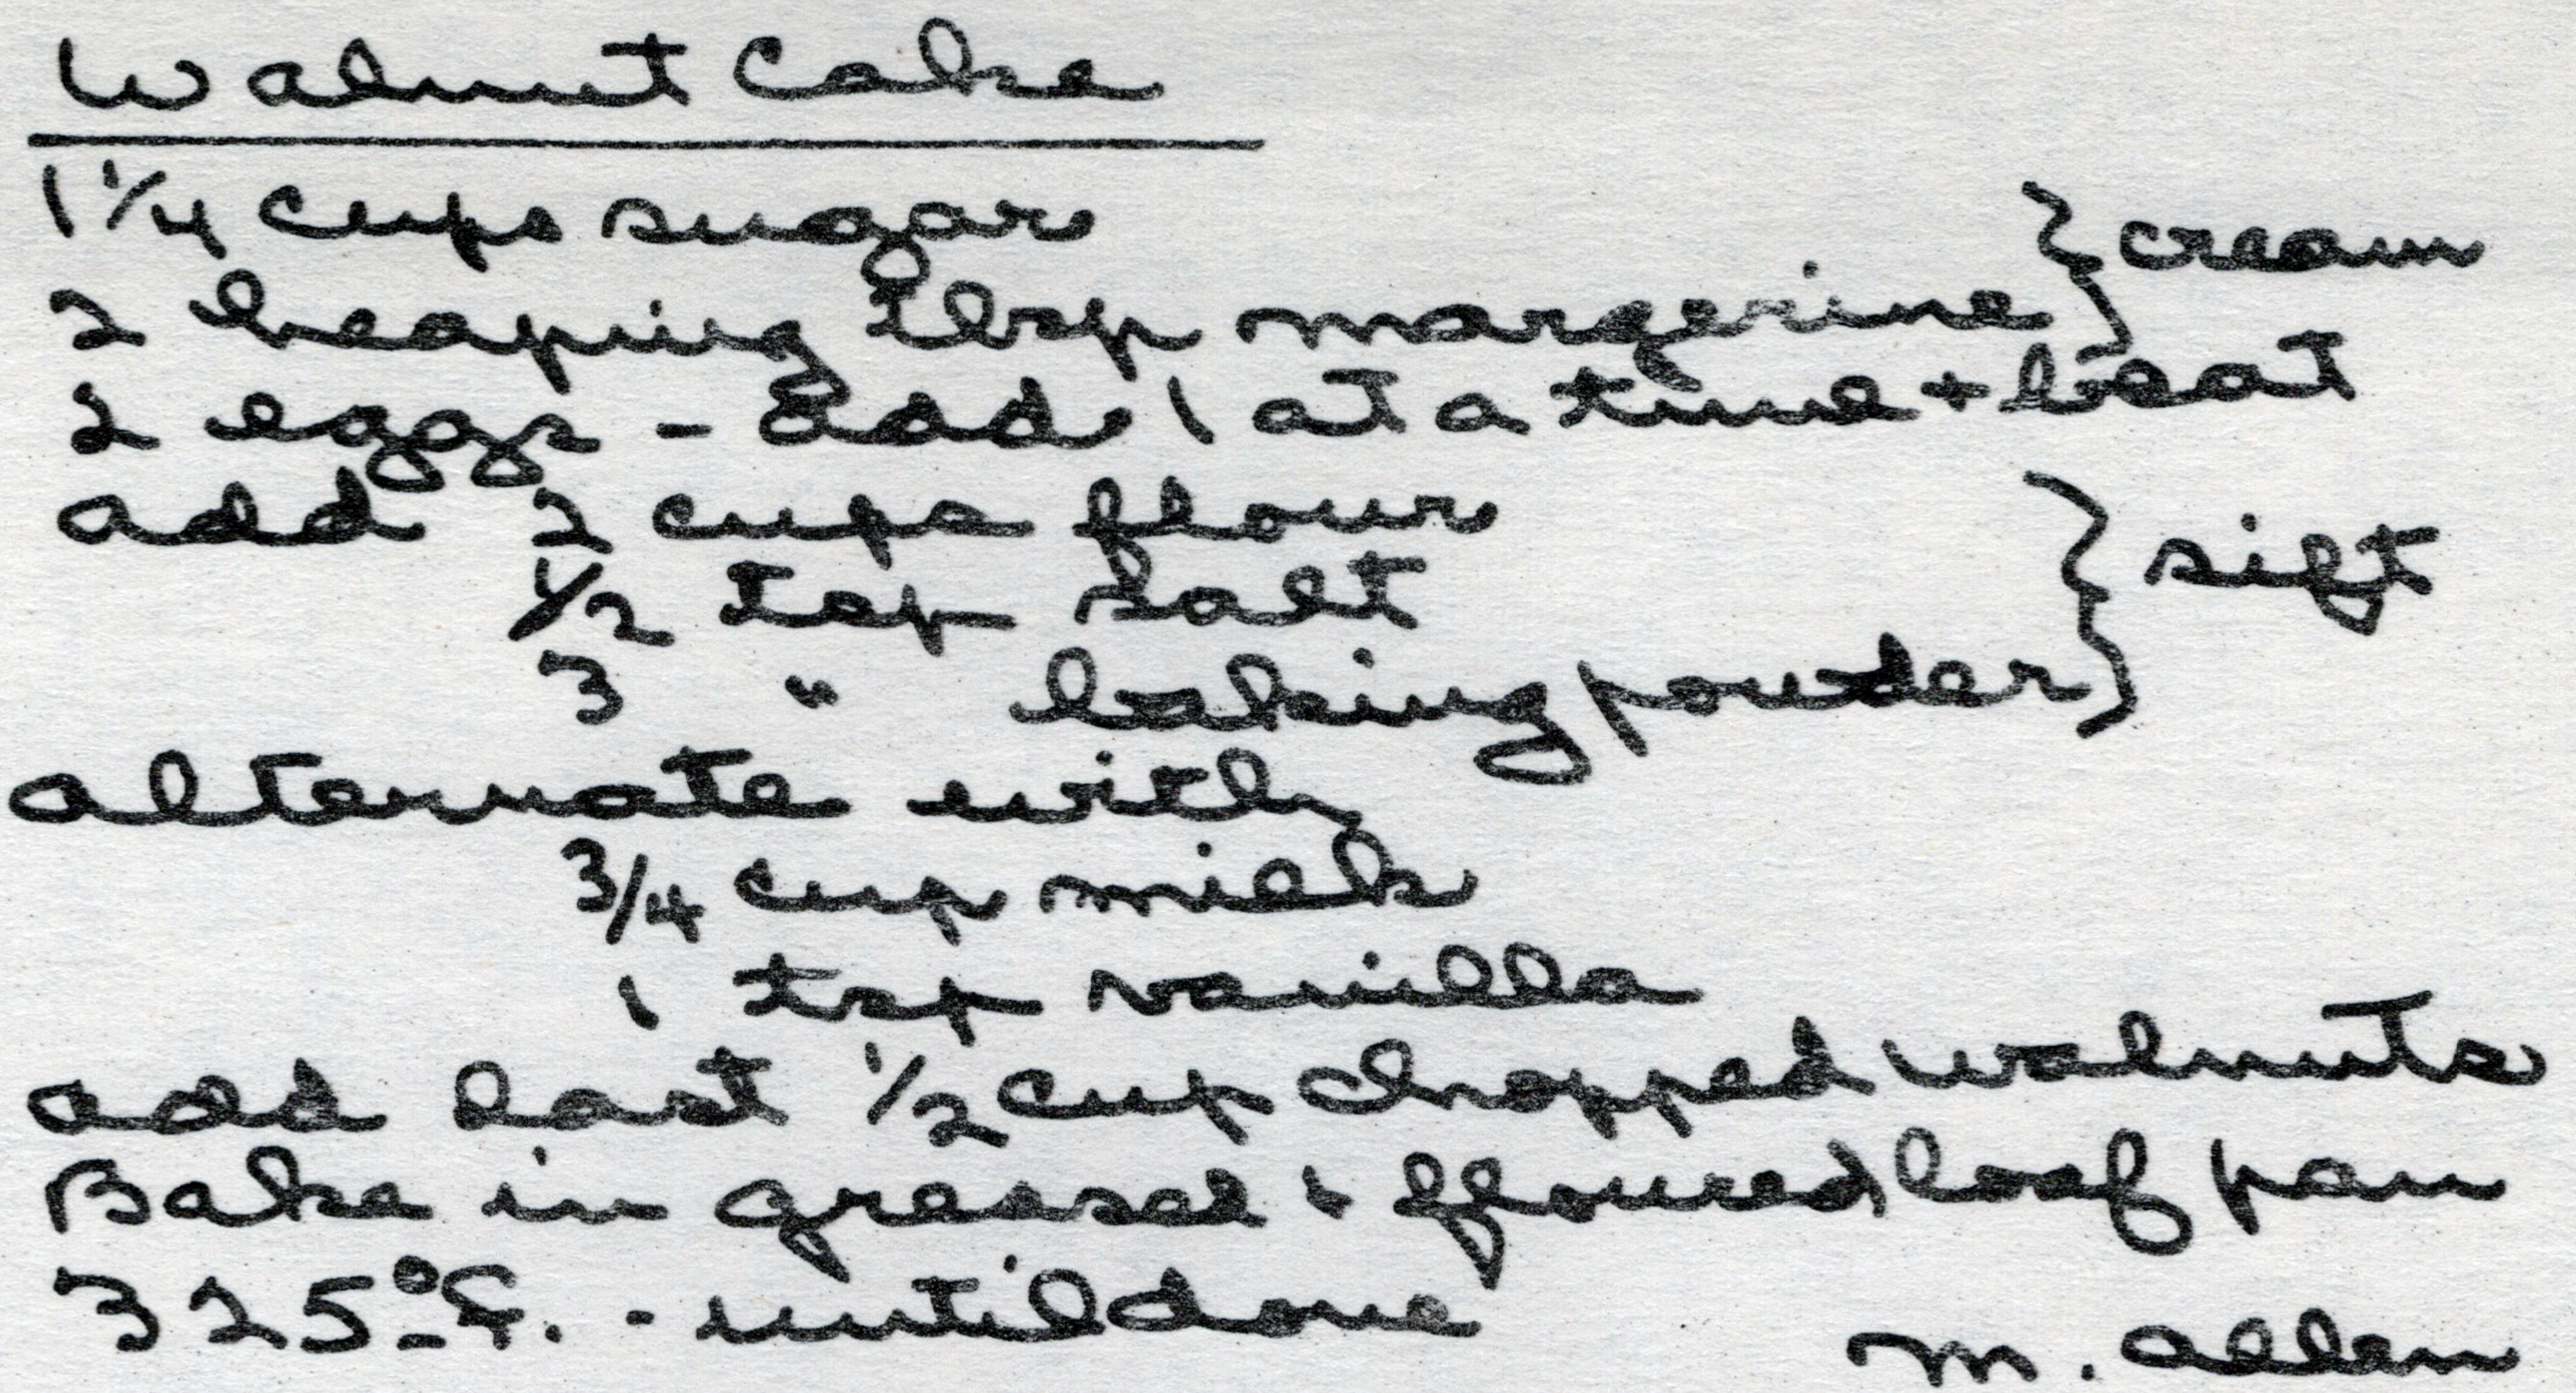 Walnut Cake
1 1/4 cups sugar } cream
2 heaping tbsp margerine
2 eggs - add 1 at a time + beat
add 2 cups flour } sift
1/2 tsp salt
3 " baking powder
alternate with
3/4 cup milk
1 tsp vanilla
add last 1/2 cup chopped walnuts
Bake in greased + floured loaf pan
325°F. - until done
M. Allen